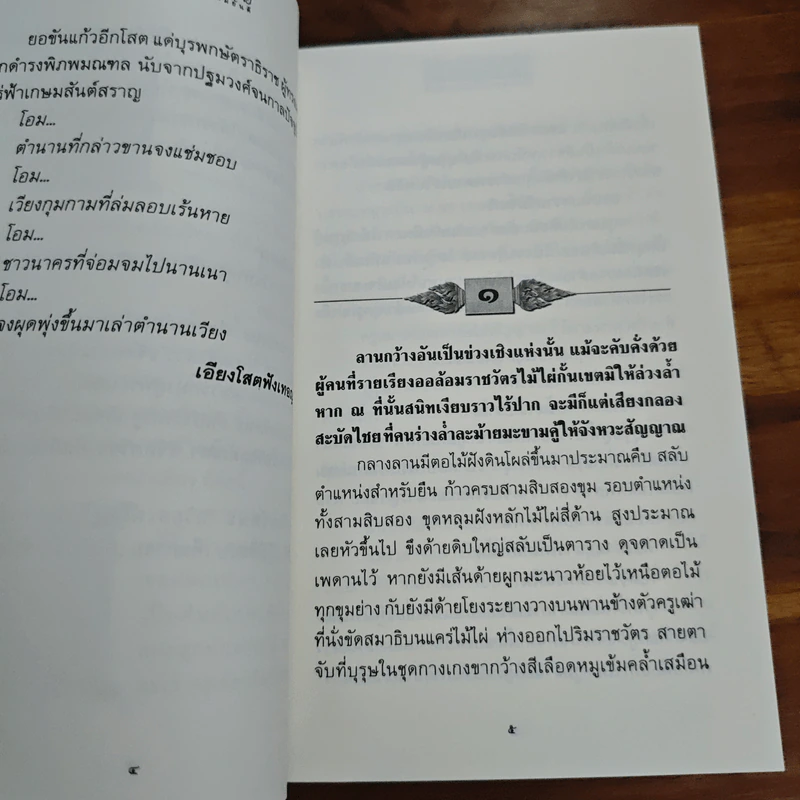 ยอขันแก้วอีกโสต แด่บุรพกษัตราธิราช
กดำรงพิภพมณฑล นับจากปฐมวงศ์จนกาล
ฟ้าเกษมสันต์สราญ
โอม...
ตำนานที่กล่าวขานจงแช่มชอบ
โอม...
เวียงกุมกามที่ล่มลอบเร้นหาย
โอม...
ชาวนาครที่จ่อมจมไปนานเนา
โอม...
จงผุดพุ่งขึ้นมาเล่าตำนานเวียง
เอียงโสตฟังเทอญ
๔
๑
ลานกว้างอันเป็นข่วงเชิงแห่งนั้น แม้จะคับคั่งด้วย
ผู้คนที่รายเรียงออล้อมราชวัตรไม้ไผ่กั้นเขตมิให้ล่วงล้ำ
หาก ณ ที่นั้นสนิทเงียบราวไร้ปาก จะมีก็แต่เสียงกลอง
สะบัดไชย ที่คนร่างล่ำละม้ายมะขามคู้ให้จังหวะสัญญาณ
กลางลานมีตอไม้ฝังดินโผล่ขึ้นมาประมาณคืบ สลับ
ตำแหน่งสำหรับยืน ก้าวครบสามสิบสองขุม รอบตำแหน่ง
ทั้งสามสิบสอง ขุดหลุมฝังหลักไม้ไผ่สี่ด้าน สูงประมาณ
เลยหัวขึ้นไป ขึงด้ายดิบใหญ่สลับเป็นตาราง ดุจดาดเป็น
เพดานไว้ หากยังมีเส้นด้ายผูกมะนาวห้อยไว้เหนือตอไม้
ทุกขุมย่าง กับยังมีด้ายโยงระยางวางบนพานข้างตัวครูเฒ่า
ที่นั่งขัดสมาธิบนแคร่ไม้ไผ่ ห่างออกไปริมราชวัตร สายตา
จับที่บุรุษในชุดกางเกงขากว้างสีเลือดหมูเข้มคล้ำเสมือน
๕